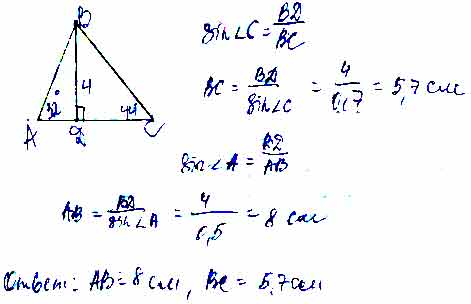 B
sin∠C = BD/BC
4
BC = BD/sin∠C = 4/0,7 = 5,7 см
A D C
sin∠A = BD/AB
AB = BD/sin∠A = 4/0,5 = 8 см
Ответ: AB = 8 см, BC = 5,7 см